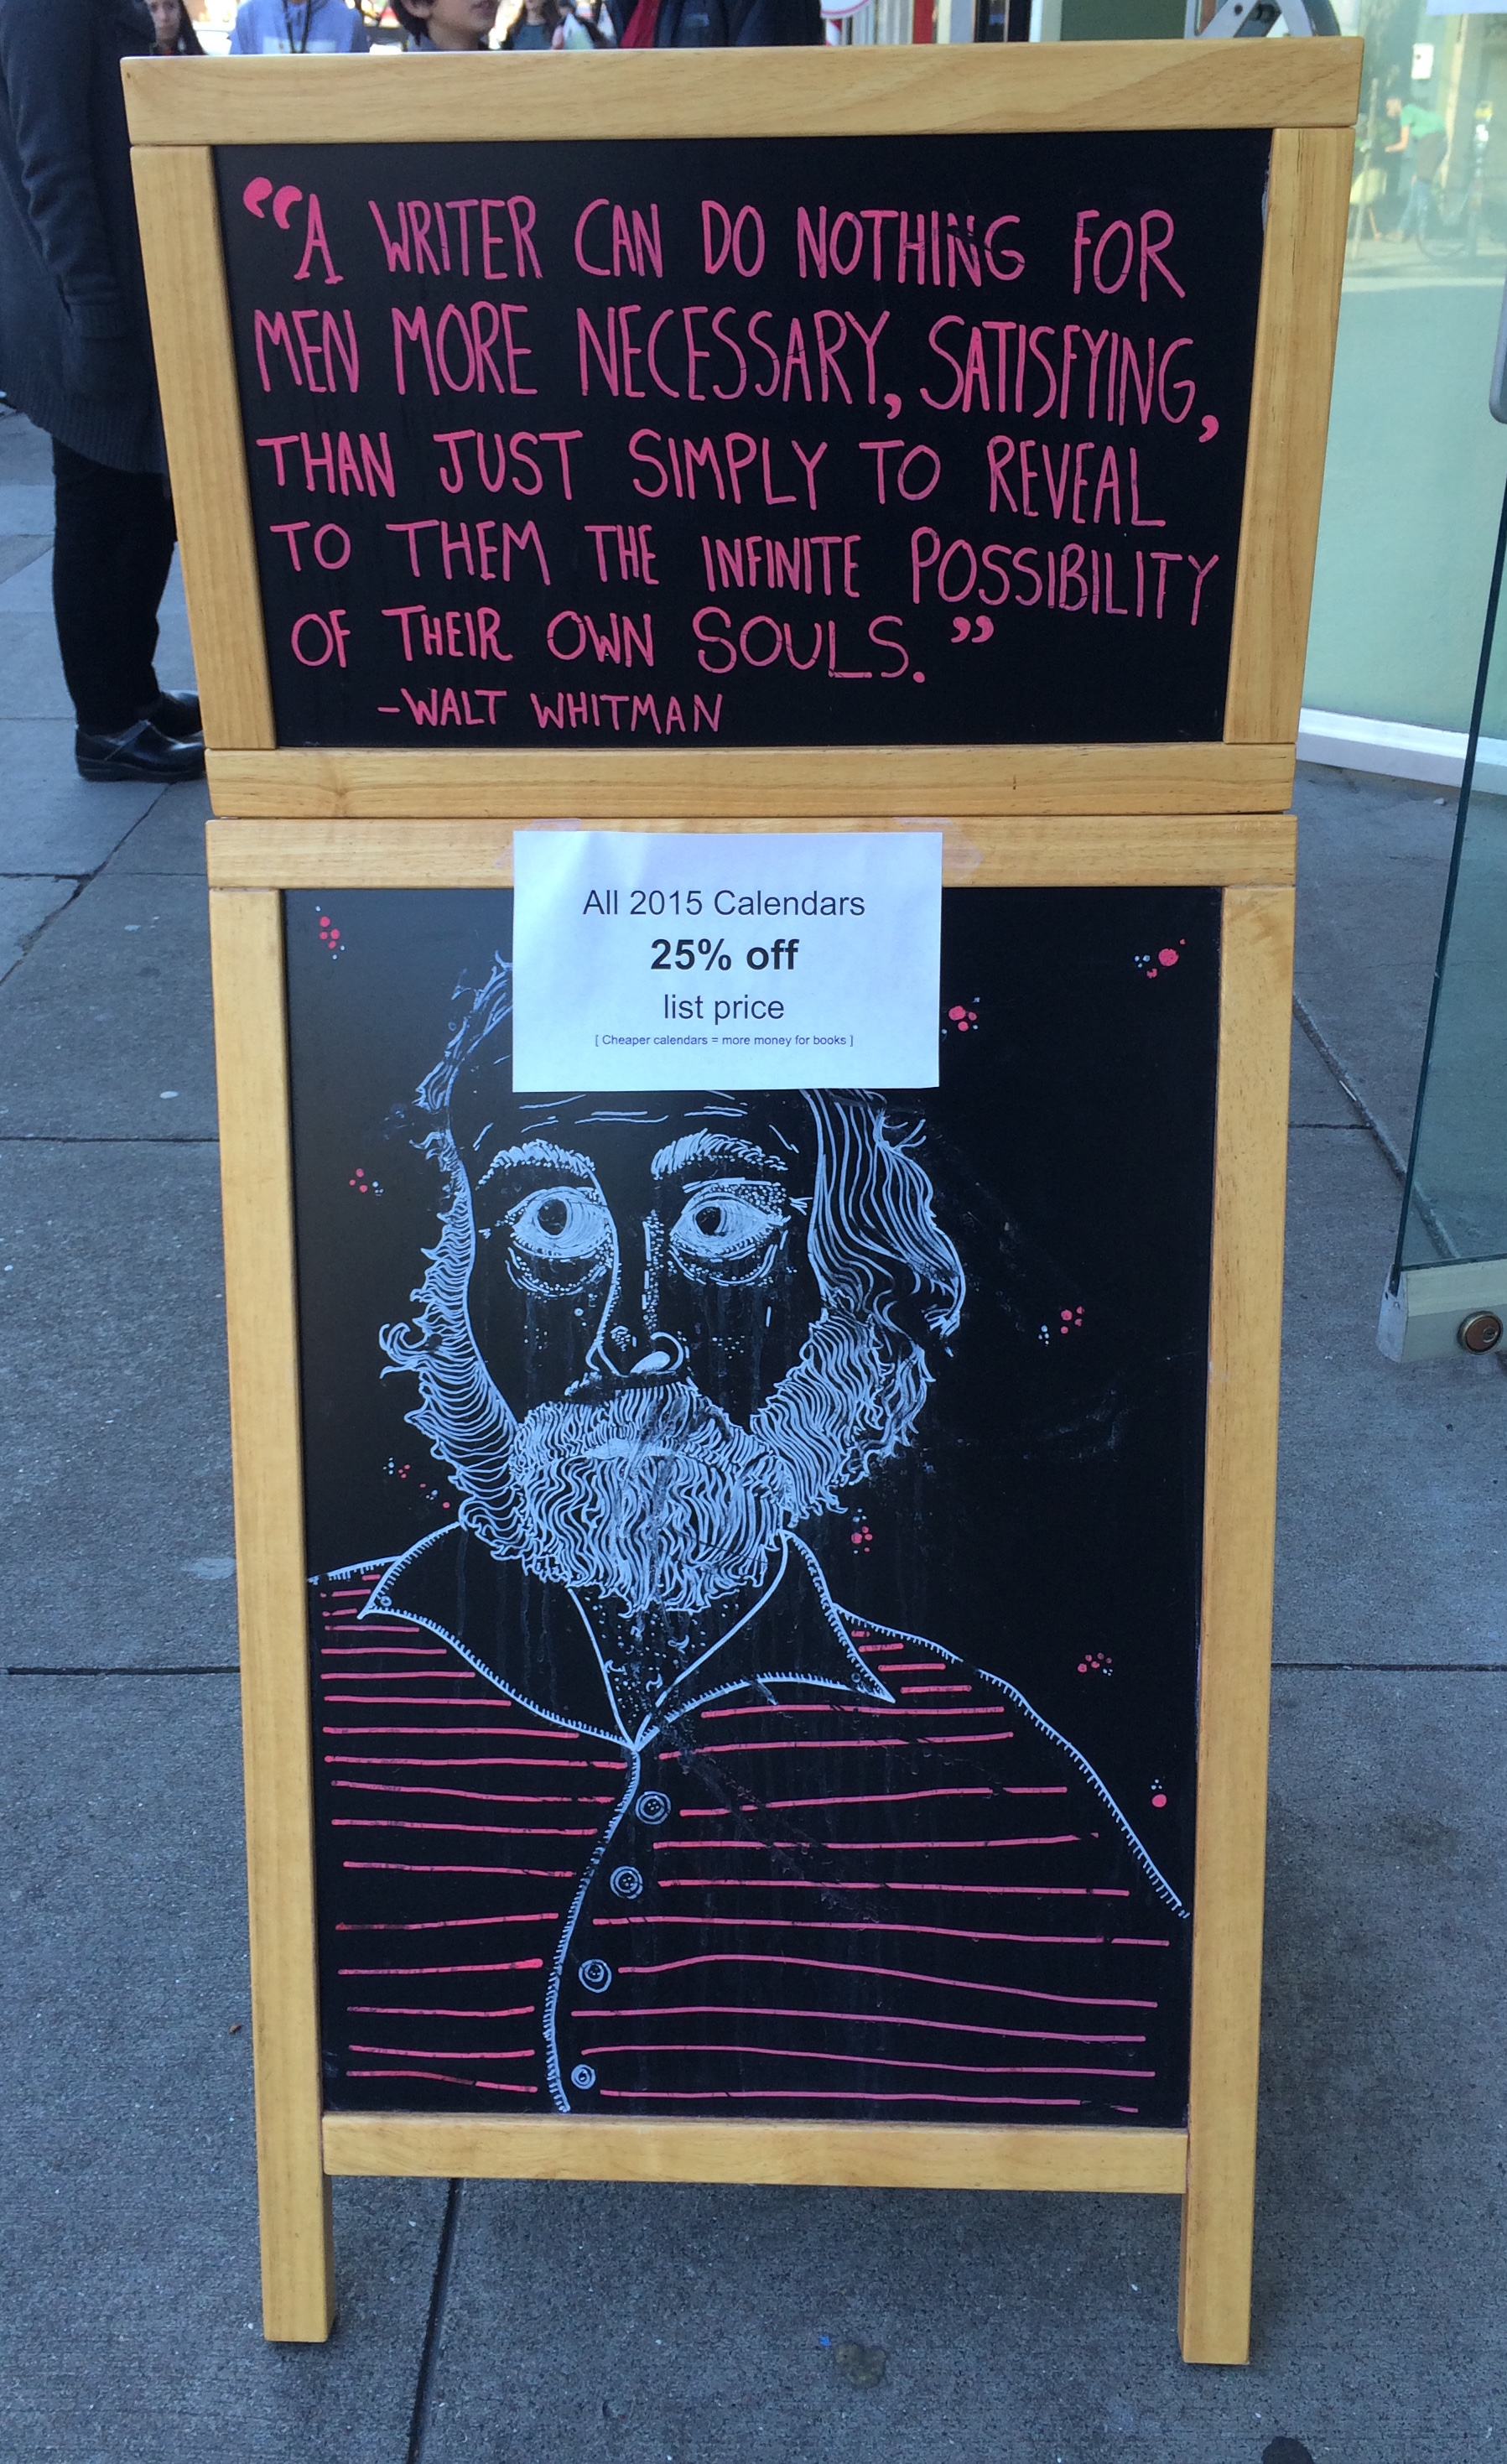 “A WRITER CAN DO NOTHING FOR
MEN MORE NECESSARY, SATISFYING,
THAN JUST SIMPLY TO REVEAL
TO THEM THE INFINITE POSSIBILITY
OF THEIR OWN SOULS.”
-WALT WHITMAN
All 2015 Calendars
25% off
list price
[ Cheaper calendars = more money for books ]